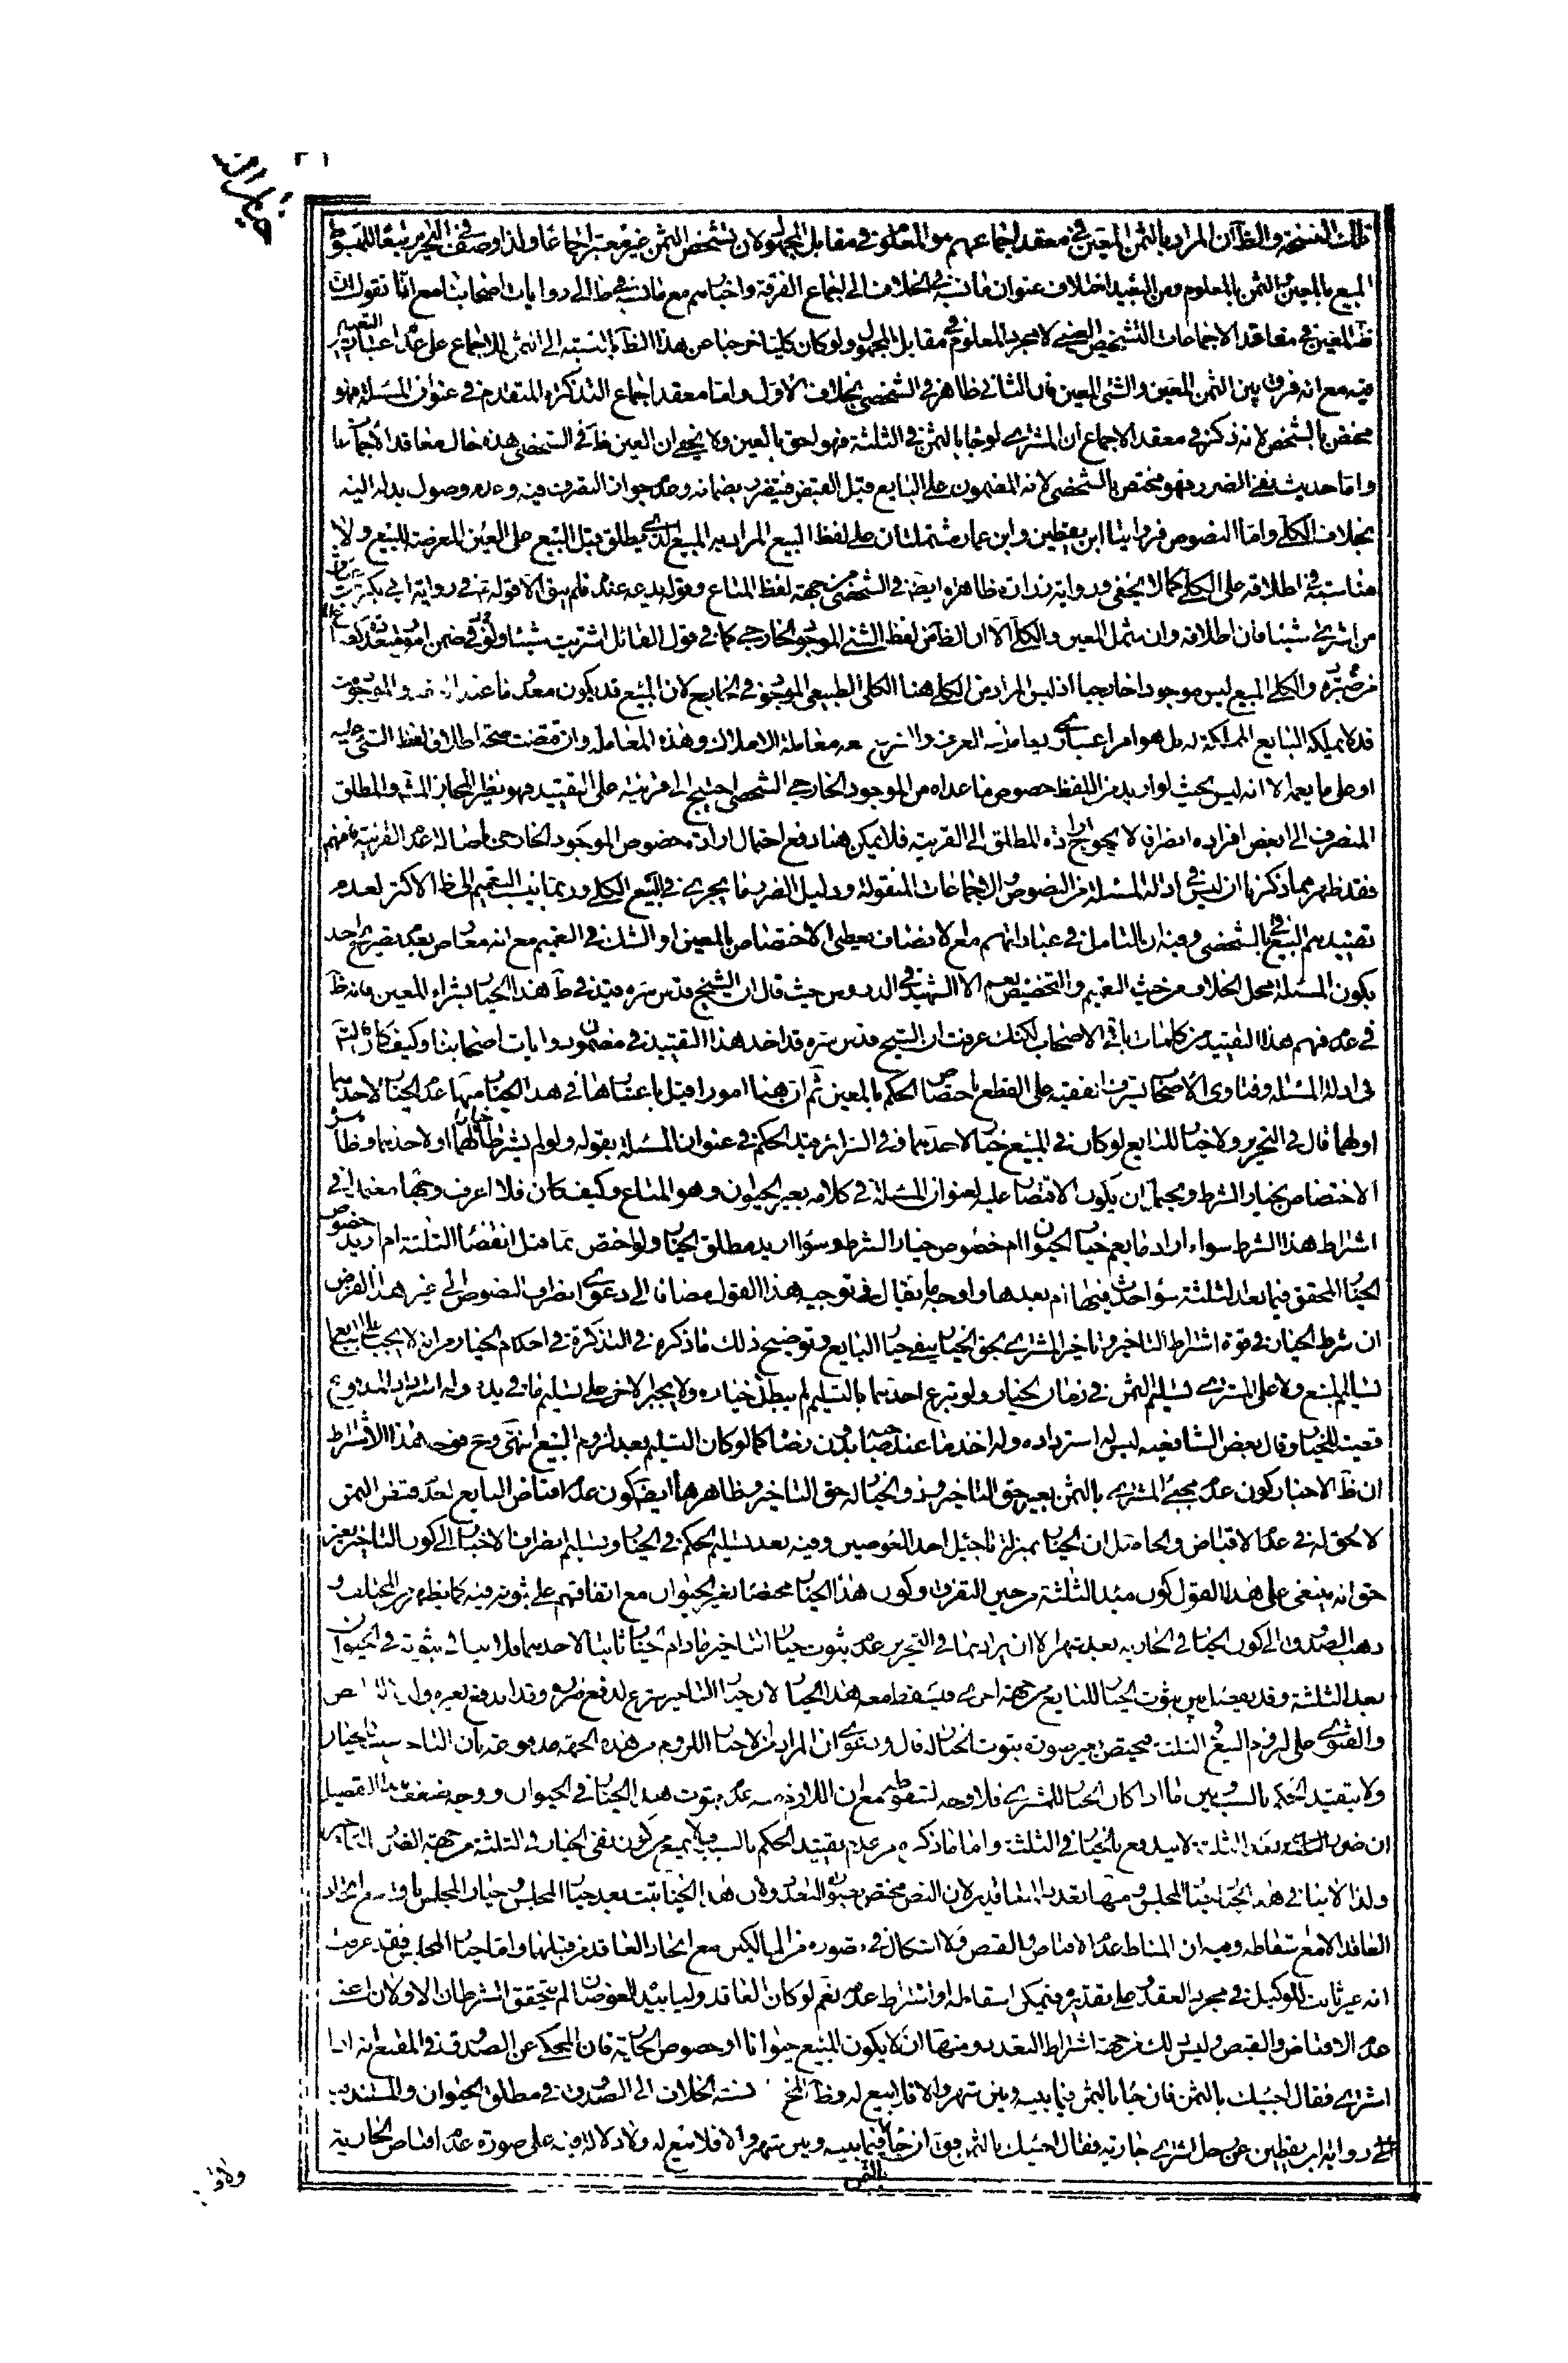 تلك النسخة والظ آن المراد بالثمن المعين في معقد اجماعهم هو المعلوم في مقابل المجهول لان تشخص الثمن غير معتبر اجماعا ولذا وصف في التحرير تبعا للمبسوط
المبيع بالمعين والثمن بالمعلوم ومن البعيد اختلاف عنوان ما نسبه في الخلاف الى اجماع الفرقة واخبارهم مع ما نسبه في ط الى روايات اصحابنا مع انا نقول ان
ظ المعين في معاقد الاجماعات التشخص العيني لا مجرد المعلوم في مقابل المجهول ولو كان كليا خرجنا عن هذا الظ بالنسبة الى الثمن للاجماع على عدم اعتبار التعيين
فيه مع انه فرق بين الثمن المعين والشئ المعين فان الثاني ظاهر في الشخصي بخلاف الاول واما معقد اجماع التذكرة المتقدم في عنوان المسئلة فهو
مختص بالشخصي لانه ذكر في معقد الاجماع ان المشتري لو جاء بالثمن في الثلثة فهو احق بالعين ولا يخفى ان العين ظ في الشخصي هذه حال معاقد الاجماعات
واما حديث نفي الضرر فهو مختص بالشخصي لانه المضمون على البايع قبل القبض فيتضرر بضمانه وعدم جواز التصرف فيه وعدم وصول بدله اليه
بخلاف الكلي واما النصوص فروايتا ابن يقطين وابن عمار مشتملتان على لفظ البيع المراد به المبيع الذي يطلق قبل البيع على العين المعرضة للبيع ولا
مناسبة في اطلاقه على الكلي كما لا يخفى ورواية زرارة ظاهرة ايضا في الشخصي من جهة لفظ المتاع وقوله يدعه عنده فلم يبق الا قوله ع في رواية ابي بكر بن عياش
من اشترى شيئا فان اطلاقه وان شمل المعين والكلي الا ان الظ من لفظ الشئ الموجود الخارجي كما في قول القائل اشتريت شيئا ولو في ضمن امور متعددة كصاع
من صبرة والكلي المبيع ليس موجودا خارجيا اذ ليس المراد من الكلي هنا الكلي الطبيعي الموجود في الخارج لان المبيع قد يكون معدوما عند العقد والموجود منه
قد لا يملكه البايع المملكة له بل هو امر اعتباري يعامل في العرف والشرع معه معاملة الاملاك وهذه المعاملة وان اقتضت صحة اطلاق لفظ الشئ عليه
او على ما يعمه الا انه ليس بحيث لو اريد من اللفظ خصوص ما عداه من الموجود الخارجي الشخصي احتيج الى قرينة على التقييد فهو نظير المجاز المشهور والمطلق
المنصرف الى بعض افراده انصرافا لا يحوج ارادة المطلق الى القرينة فلا يمكن هنا دفع احتمال ارادة خصوص الموجود الخارجي باصالة عدم القرينة فافهم
فقد ظهر مما ذكرنا ان ليس في ادلة المسئلة من النصوص والاجماعات المنقولة ودليل الضرر ما يجري في المبيع الكلي وربما ينسب التعميم الى ظ الاكثر لعدم
تقييدهم البيع بالشخصي وفيه ان التامل في عباراتهم مع الانصاف يعطي الاختصاص بالمعين او الشك في التعميم مع انه معارض بعدم تصريح احد
بكون المسئلة محل الخلاف من حيث التعميم والتخصيص نعم الا الشهيد في الدروس حيث قال ان الشيخ قدس سره قيد في ط هذا الخيار بشراء المعين فانه ظ
في عدم فهم هذا التقييد من كلمات باقي الاصحاب لكنك عرفت ان الشيخ قدس سره قد اخذ هذا التقييد في مضمون روايات اصحابنا وكيف كان فالتامل
في ادلة المسئلة وفتاوى الاصحاب يشرف الفقيه على القطع باختصاص الحكم بالمعين ثم ان هنا امورا قيل باعتبارها في هذا الخيار منها عدم الخيار لاحدهما
او لهما قال في التحرير ولا خيار للبايع لو كان في المبيع خيار لاحدهما وفي السرائر قيد الحكم في عنوان المسئلة بقوله ولو لم يشترطا خيارا لهما او لاحدهما وظاهره
الاختصاص بخيار الشرط ويحتمل ان يكون الاقتصار عليه لعنوان المسئلة في كلامه بغير الحيوان وهو المتاع وكيف كان فلا اعرف وجها معتمدا في
اشتراط هذا الشرط سواء اراد ما يعم خيار الحيوان ام خصوص خيار الشرط وسواء اريد مطلق الخيار ولو اختص بما قبل انقضاء الثلثة ام اريد خصوص
الخيار المحقق فيما بعد الثلثة سواء حدث فيها ام بعدها واوجه ما يقال في توجيه هذا القول مضافا الى دعوى انصراف النصوص الى غير هذا الفرض
ان شرط الخيار في قوة اشتراط التاخير وتاخير المشتري بحق الخيار ينفي خيار البايع وتوضيح ذلك ما ذكره في التذكرة في احكام الخيار من انه لا يجب على البايع
تسليم المبيع ولا على المشتري تسليم الثمن في زمان الخيار ولو تبرع احدهما بالتسليم لم يبطل خياره ولا يجبر الاخر على تسليم ما في يده وله استرداد المدفوع
قضية للخيار وقال بعض الشافعية ليس له استرداده وله اخذ ما عند صاحبه بدون رضاه كما لو كان التسليم بعد لزوم البيع انتهى وح فوجه هذا الاشتراط
ان ظ الاخبار كون عدم مجئ المشتري بالثمن بغير حق التاخير وذو الخيار له حق التاخير وظاهرها ايضا كون عدم اقباض البايع لعدم قبض الثمن
لا لحق له في عدم الاقباض والحاصل ان الخيار بمنزلة تاجيل احد العوضين وفيه بعد تسليم الحكم في الخيار وتسليم انصراف الاخبار الى كون التاخير بغير
حق انه ينبغي على هذا القول كون مبدء الثلثة من حين التفرق وكون هذا الخيار مختصا بغير الحيوان مع اتفاقهم على ثبوته فيه كما يظهر من المختلف و
ذهب الصدوق الى كون الخيار في الجارية بعد شهر الا ان يراد بما في التحرير عدم ثبوت خيار التاخير ما دام الخيار ثابتا لاحدهما فلا ينافي ثبوته في الحيوان
بعد الثلثة وقد يفصل بين ثبوت الخيار للبايع من جهة اخرى فيسقط معه هذا الخيار لان خيار التاخير شرع لدفع ضرره وقد اندفع بغيره ولدلالة النص
والفتوى على لزوم البيع في الثلثة فيختص بغير صورة ثبوت الخيار له قال ودعوى ان المراد من الاخبار اللزوم من هذه الجهة مدفوعة بان التاخير سبب للخيار
ولا يتقيد الحكم بالسبب وبين ما اذا كان الخيار للمشتري فلا وجه لسقوطه مع ان اللازم منه عدم ثبوت هذا الخيار في الحيوان ووجه ضعف هذا التفصيل
ان ضرر الصبر بعد الثلثة لا يندفع بالخيار في الثلثة واما ما ذكره من عدم تقييد الحكم بالسبب فلا يمنع من كون نفي الخيار في الثلثة من جهة الضرر بالتاخير
ولذا لا ينافي هذا الخيار خيار المجلس ومنها تعدد المتعاقدين لان النص مختص بصورة التعدد ولان هذا الخيار ثبت بعد خيار المجلس وخيار المجلس باق مع اتحاد
العاقد الا مع اسقاطه وفيه ان المناط عدم الاقباض والقبض ولا اشكال في تصوره من المالكين مع اتحاد العاقد من قبلهما واما خيار المجلس فقد عرفت
انه غير ثابت للوكيل في مجرد العقد وعلى تقديره فيمكن اسقاطه او اشتراط عدمه نعم لو كان العاقد وليا بيده العوضان لم يتحقق الشرطان الاولان اعني
عدم الاقباض والقبض وليس ذلك من جهة اشتراط التعدد ومنها ان لا يكون المبيع حيوانا او خصوص الجارية فان المحكي عن الصدوق في المقنع انه اذا
اشترى فقال اجيئك بالثمن فان جاء بالثمن فيما بينه وبين شهر والا فلا بيع له وظ المختلف نسبة الخلاف الى الصدوق في مطلق الحيوان والمستند فيه
رواية ابن يقطين عن رجل اشترى جارية فقال اجيئك بالثمن فقال ان جاء بالثمن فيما بينه وبين شهر والا فلا بيع له ولا دلالة فيه على صورة عدم اقباض الجارية